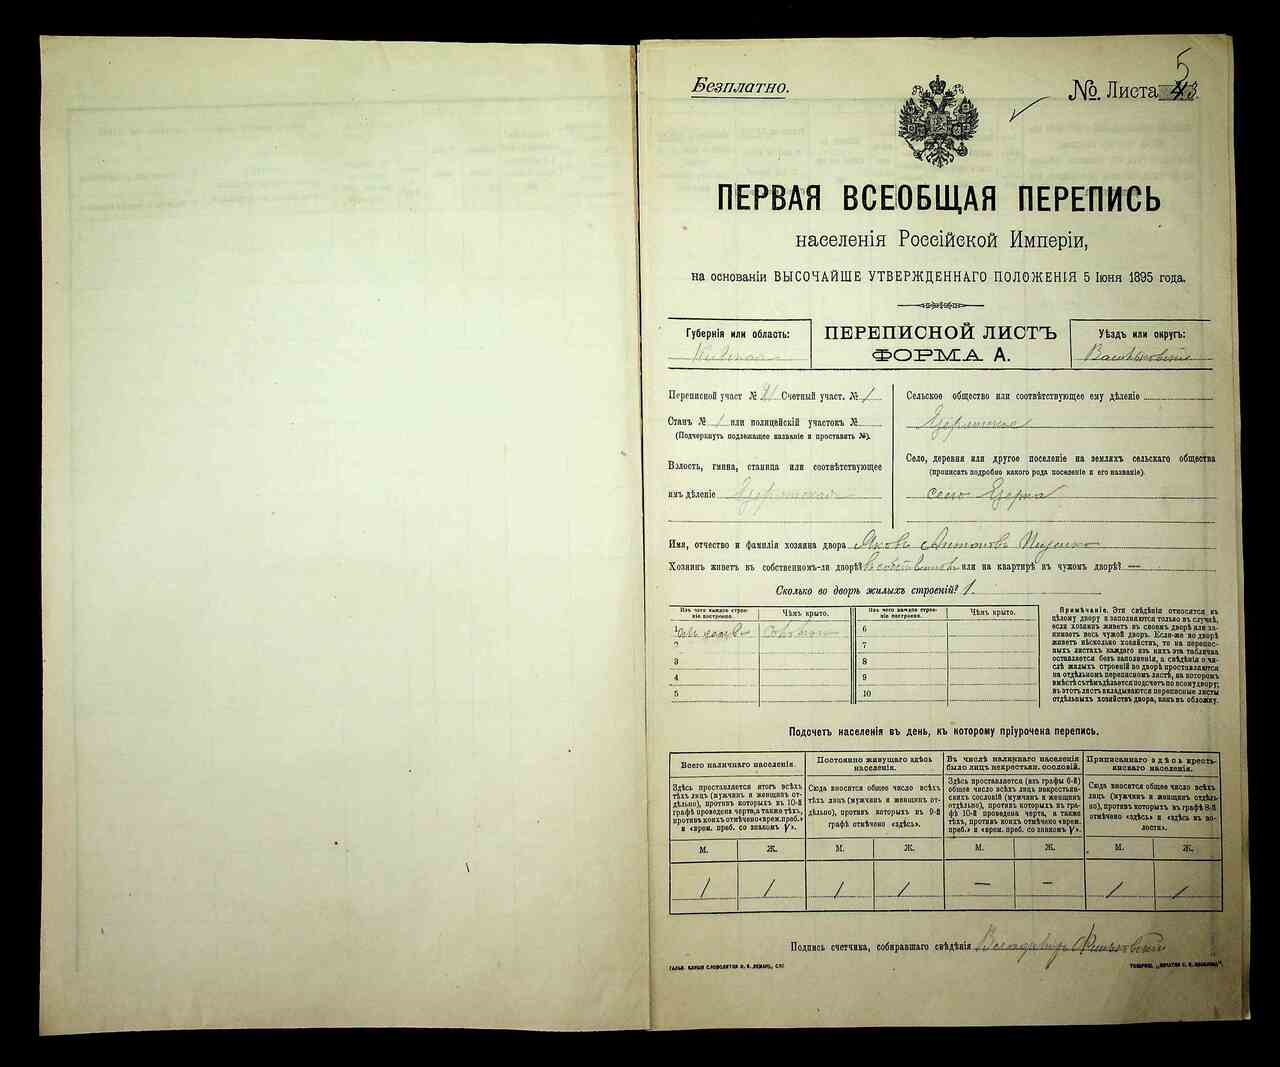 Безплатно.
№ Листа 5
ПЕРВАЯ ВСЕОБЩАЯ ПЕРЕПИСЬ
населенія Россійской Имперіи,
на основаніи ВЫСОЧАЙШЕ УТВЕРЖДЕННАГО ПОЛОЖЕНІЯ 5 Іюня 1895 года.
Губернія или область:
Кіевская
ПЕРЕПИСНОЙ ЛИСТЪ
ФОРМА А.
Уѣздъ или округъ:
Васильковскій
Переписной участ № 21 Счетный участ. № 1
Станъ № 1 или полицейскій участокъ №
(Подчеркнуть подлежащее названіе и проставить №).
Волость, гмина, станица или соотвѣтствующее
имъ дѣленіе
Сельское общество или соотвѣтствующее ему дѣленіе
Село, деревня или другое поселеніе на земляхъ сельскаго общества
(прописать подробно какого рода поселеніе и его названіе).
село
Имя, отчество и фамилія хозяина двора Яковъ Антоновъ
Хозяинъ живетъ въ собственномъ-ли дворѣ? въ собственномъ или на квартирѣ въ чужомъ дворѣ? —
Сколько во дворѣ жилыхъ строеній? 1.
Изъ чего каждое строеніе построено.
Чѣмъ крыто.
Изъ чего каждое строеніе построено.
Чѣмъ крыто.
1 соломою 6
2 7
3 8
4 9
5 10
Примѣчаніе. Эти свѣдѣнія относятся къ
цѣлому двору и заполняются только въ случаѣ,
если хозяинъ живетъ въ своемъ дворѣ или за-
нимаетъ весь чужой дворъ. Если-же во дворѣ
живетъ нѣсколько хозяйствъ, то на перепис-
ныхъ листахъ каждаго изъ нихъ эта табличка
оставляется безъ заполненія, а свѣдѣнія о чи-
слѣ жилыхъ строеній во дворѣ проставляются
на отдѣльномъ переписномъ листѣ, на которомъ
вмѣстѣ съ тѣмъ дѣлается подсчетъ по всему двору;
въ этотъ листъ вкладываются переписные листы
отдѣльныхъ хозяйствъ двора, какъ въ обложку.
Подсчетъ населенія въ день, къ которому пріурочена перепись.
Всего наличнаго населенія.
Здѣсь проставляется итогъ всѣхъ
тѣхъ лицъ (мужчинъ и женщинъ от-
дѣльно), противъ которыхъ въ 10-й
графѣ проведена черта, а также тѣхъ,
противъ коихъ отмѣчено «врем. преб.»
и «врем. преб. со знакомъ V».
Постоянно живущаго здѣсь
населенія.
Сюда вносится общее число всѣхъ
тѣхъ лицъ (мужчинъ и женщинъ от-
дѣльно), противъ которыхъ въ 9-й
графѣ отмѣчено «здѣсь».
Въ числѣ наличнаго населенія
было лицъ некрестьян. сословій.
Здѣсь проставляется (изъ графы 6-й)
общее число всѣхъ лицъ некрестьян-
скихъ сословій (мужчинъ и женщинъ
отдѣльно), противъ которыхъ въ гра-
фѣ 10-й проведена черта, а также
тѣхъ, противъ коихъ отмѣчено «врем.
преб.» и «врем. преб. со знакомъ V».
Приписаннаго здѣсь кресть-
янскаго населенія.
Сюда вносится общее число всѣхъ
лицъ (мужчинъ и женщинъ отдѣль-
но), противъ которыхъ въ графѣ 8-й
отмѣчено «здѣсь» и «здѣсь въ во-
лости».
М. Ж. М. Ж. М. Ж. М. Ж.
1 1 1 1 — — 1 1
Подпись счетчика, собиравшаго свѣдѣнія